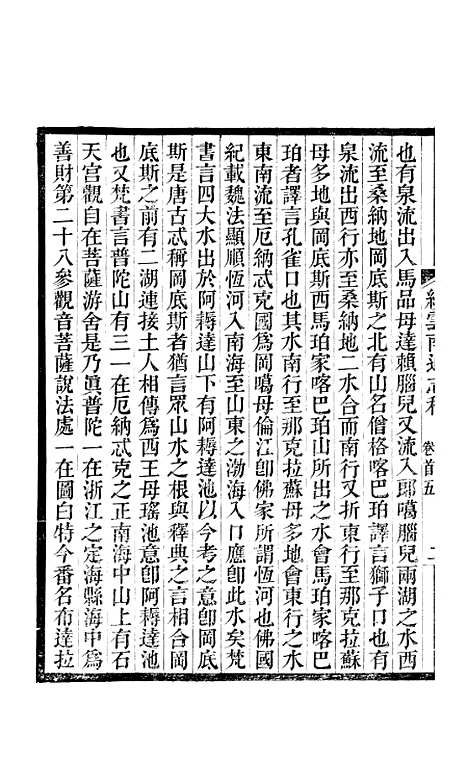 續雲南通志稿 卷首五 二
也有泉流出入馬品母達賴腦兒又流入郎噶腦兒兩湖之水西
流至桑納地岡底斯之北有山名僧格喀巴珀譯言獅子口也有
泉流出西行亦至桑納地二水合而南行至那克拉蘇
母多地與岡底斯西馬珀家喀巴珀山所出之水會馬珀家喀巴
珀者譯言孔雀口也其水南行至那克拉蘇母多地會東行之水
東南流至厄納忒克國爲岡噶母倫江卽佛家所謂恆河也佛國
紀載魏法顯順恆河入南海至山東之渤海入口應卽此水矣梵
書言四大水出於阿耨達山下有阿耨達池以今考之意卽岡底
斯是唐古忒稱岡底斯者猶言眾山水之根與釋典之言相合岡
底斯之前有二湖連接土人相傳爲西王母瑤池意卽阿耨達池
也又梵書言普陀山有三一在厄納忒克之正南海中山上有石
天宮觀自在菩薩游舍是乃眞普陀一在浙江之定海縣海中爲
善財第二十八參觀音菩薩說法處一在圖白特今番名布達拉